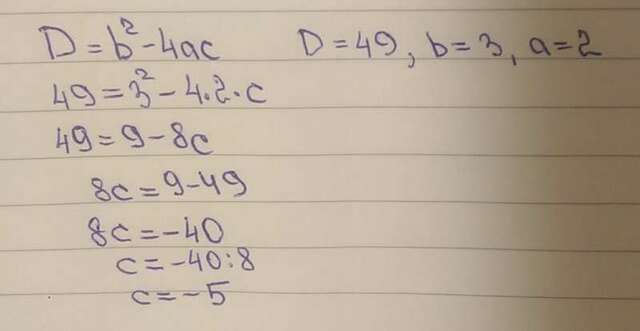 D=b²-4ac D=49, b=3, a=2
49=3²-4·2·c
49=9-8c
8c=9-49
8c=-40
c=-40:8
c=-5